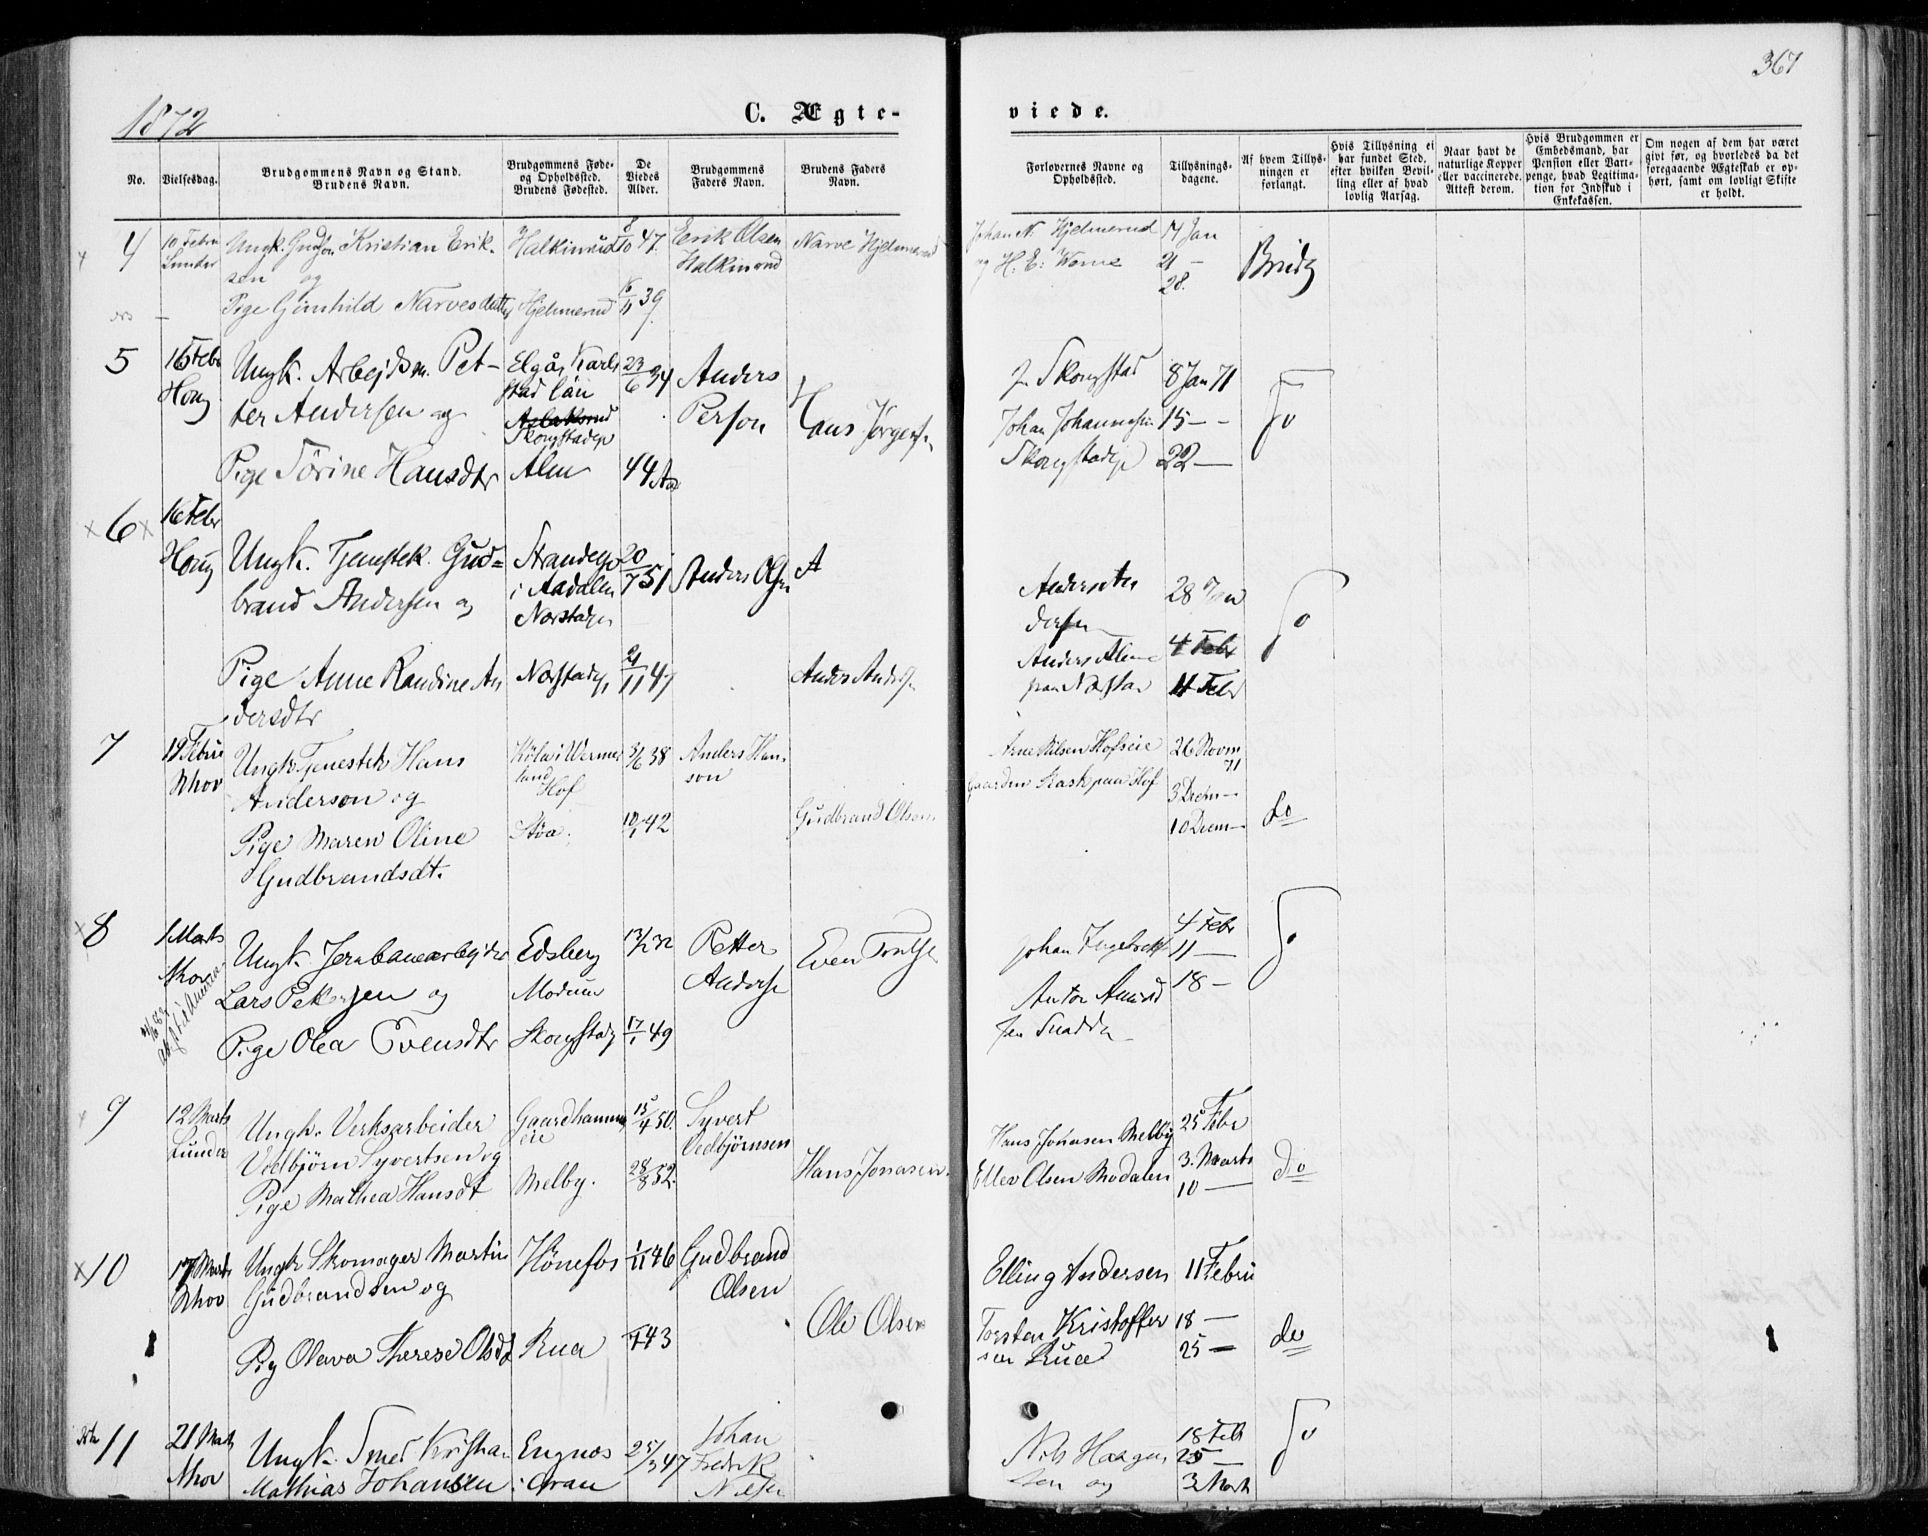 1872
C. Ægte-
viede.
367
No.
Vielsesdag.
Brudgommens Navn og Stand.
Brudens Navn.
Brudgommens Føde-
og Opholdssted.
Brudens Fødested.
De
Viedes
Alder.
Brudgommens
Faders Navn.
Brudens Faders
Navn.
Forlovernes Navne og
Opholdssted.
Tillysnings-
dagene.
Af hvem Tillys-
ningen er
forlangt.
Hvis Tillysning ei
har fundet Sted,
efter hvilken Bevil-
ling eller af hvad
lovlig Aarsag.
Naar havt de
naturlige Kopper
eller vaccinerede.
Attest derom.
Hvis Brudgommen er
Embedsmand, har
Pension eller Vart-
penge, hvad Legitima-
tion for Indskud i
Enkekassen.
Om nogen af dem har været
givt før, og hvorledes da det
foregaaende Ægteskab er op-
hørt, samt om lovligt Skifte
er holdt.
4
10 Febru
Lunder
Ungk. Kristian Erik-
sen og
Pige Gunhild Narvesdatter
Halkinrud
Hjelmerud
8/10 47.
6/11 39.
Erik Olsen
Halkinrud
Narve Hjelmerud
Johan N. Hjelmerud
og H. E.
14 Jan
21 —
28.
Brudg
5
16 Febr
Houg
Ungk. Arbejdsm. Pet-
ter Andersen og
Pige Torine Hansdtr
Elgå, Karl
stad län
Skougstadeje
Alm
23/6 34
44 Aar
Anders
Person
Hans Jørgens.
J. Skougstad
Johan Johannesen
Skougstadeje
8 Jan 71
15 — -
22 —
Do
6
16 Febr
Houg
Ungk. Tjenstek. Gud-
brand Andersen og
Pige Anne Randine An
dersdtr
Strandeje
i Aadalen
Norstadeje
Norstadeje
20/7 51
21/11 47
Anders Olsen
A
Anders Anders.
Anders An
dersen
Anders Alme
paa Norstad
28 Jan
4 Febr
11 Febr
Do
7
19 Febru
Nhov
Ungk. Tjenestek Hans
Anderson og
Pige Maren Oline
Gudbrandsdt.
Köla i Werme
land
Hof
Støa.
3/6 38
10/1 42
Anders Han
son
Gudbrand Olsen.
Arne Nilsen Hofseie
Gaardm. Rask paa Hof
26 Novm
71
3 Decm —
10 Decm —
do
8
1 Marts
Nhov
Ungk. Jernbanearbejder
Lars Pettersen og
Pige Olea Evensdtr
Edsberg
Modum
Skougstadej
13/12 32
17/1 49
Petter
Anderse
Even
Johan Ingebrekts
Anton Amund
sen Snadda
4 Febr
11 —
18 —
Do
9
12 Marts
Lunder
Ungk. Verksarbeider
Vedbjörn Syvertsen og
Pige Mathea Hansdt
Gaardhammer
eie
Melby.
15/4 50.
28/8 52.
Syvert
Vedbjörnsen
Hans Jonasen.
Hans Jonasen Melby
Ellev Olsen Modalen
25 Febr
3. Marts
10 —
do
10
17 Marts
Nhov
Ungk Skomager Martin
Gudbrandsen og
Pig Olava Therese Olsdt
Hönefos
Rua
1/11 46
43
Gudbrand
Olsen
Ole Olsen
Elling Andersen
Torsten Kristoffer
sen Rua
11 Febru
18 —
25 —
do
11
21 Marts
Nhov
Ungk. Smed Kristian
Mathias Johansen
Engnæs
i Gran
25/3 47
Johan
Fredrik
Nilsen
Nils Haagen
sen og
18 Feb
25 —
3 Mart
Do